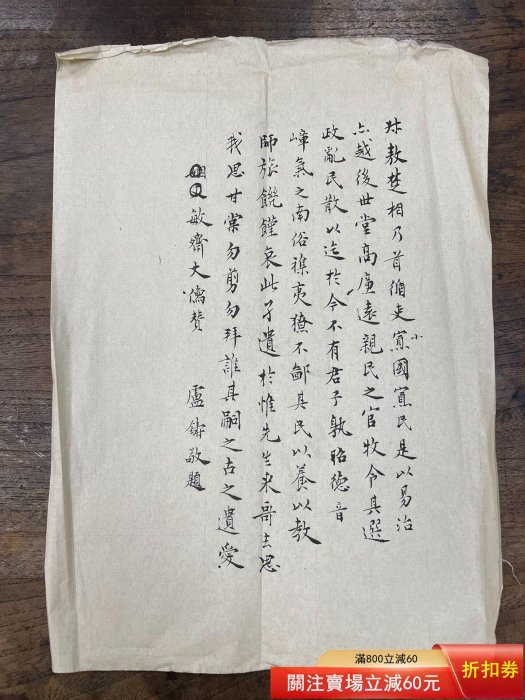 孫敖楚相乃首循吏小國寡民是以易治
亦越後世堂高廉遠親民之官牧令其選
政亂民散以迄於今不有君子孰昭德音
嶂氣之南俗襍夷獠不鄙其民以養以教
師旅饑饉哀此孑遺於惟先生來哥去思
我思甘棠勿剪勿拜誰其嗣之古之遺愛
敏齋大儒贊 盧鑄敬題
滿800立減60
關注賣場立減60元
折扣券